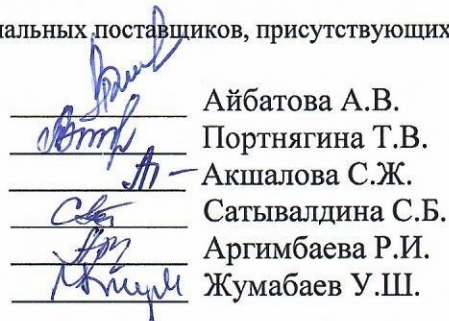 иальных поставщиков, присутствующих
Айбатова А.В.
Портнягина Т.В.
Акшалова С.Ж.
Сатывалдина С.Б.
Аргимбаева Р.И.
Жумабаев У.Ш.